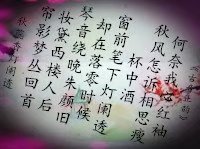 何奈我红袖
秋风怎诉相思瘦
杯中酒
窗前笔下灯阑透
却在落零时候
琴音绕晚朱颜旧
妆黛西楼人后
帘影梦丛回首